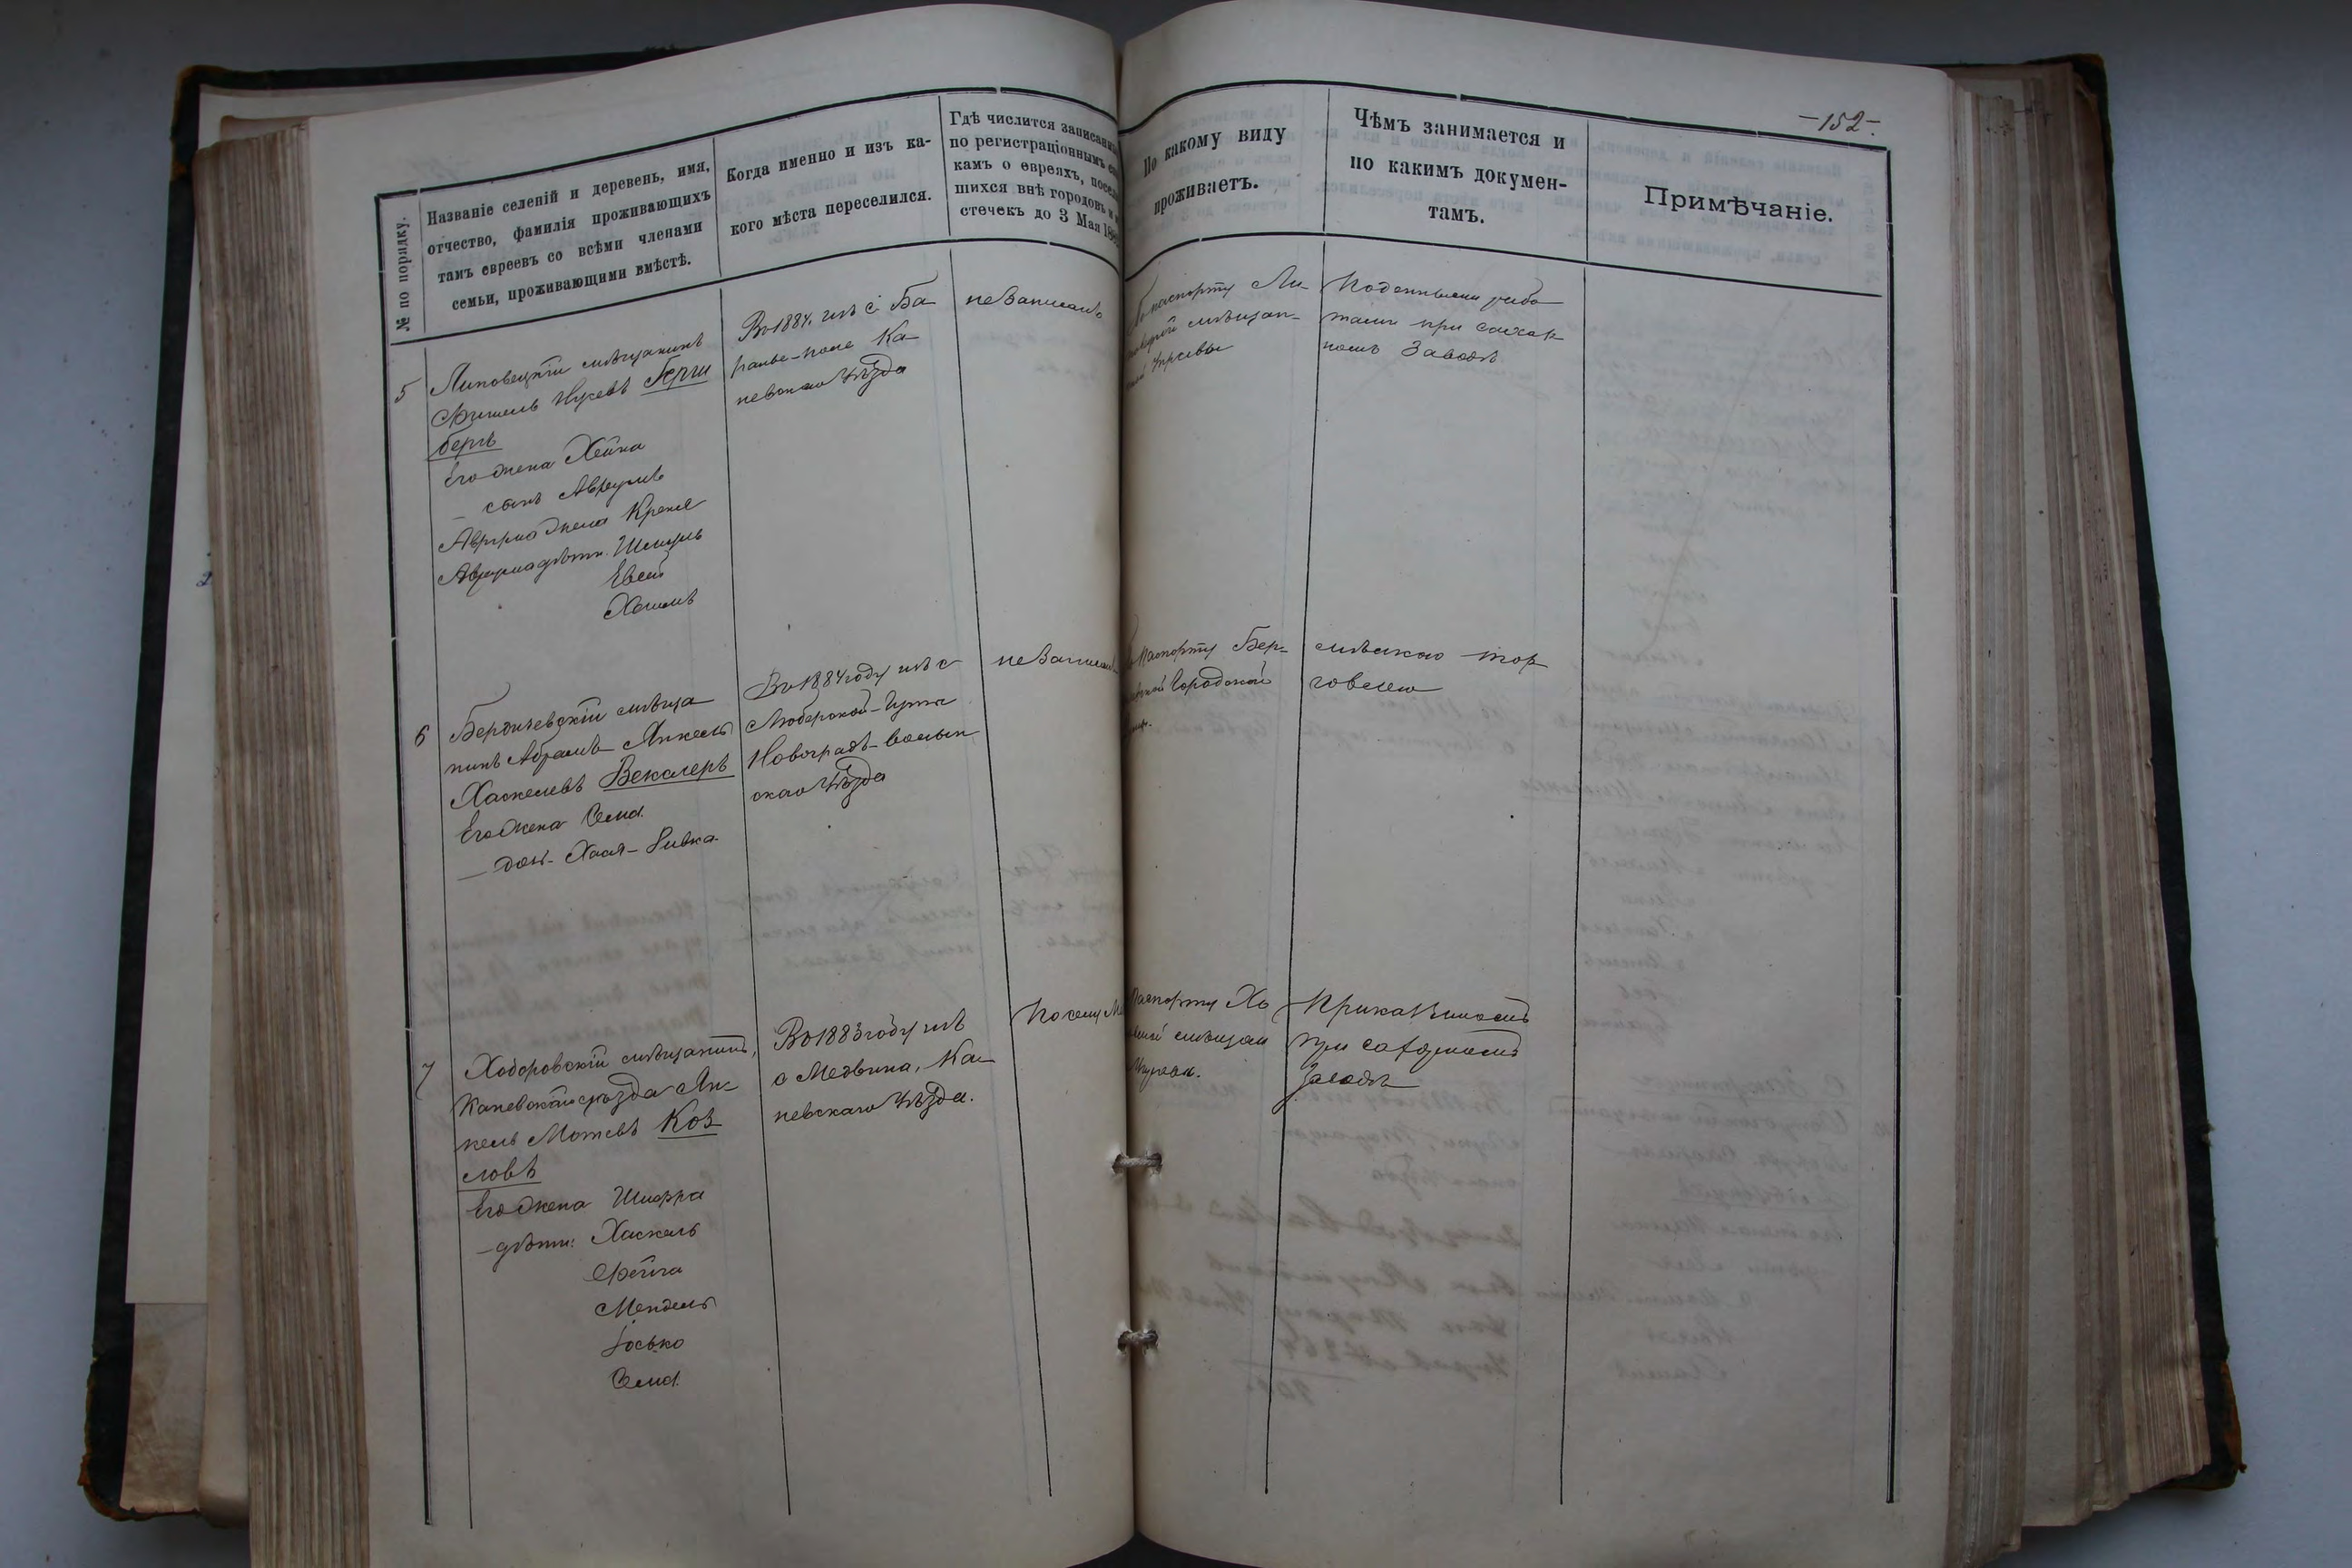 -152-.
№ по порядку.
Названіе селеній и деревень, имя,
отчество, фамилія проживающихъ
тамъ евреевъ со всѣми членами
семьи, проживающими вмѣстѣ.
Когда именно и изъ ка-
кого мѣста переселился.
Гдѣ числится
по регистраціоннымъ
камъ о евреяхъ,
шихся внѣ городовъ и
стечекъ до 3 Мая
По какому виду
проживаетъ.
Чѣмъ занимается и
по какимъ докумен-
тамъ.
Примѣчаніе.
5
Липовецкій мѣщанинъ
Фишель Герш
бергъ
Его жена Хейна
— сынъ Аврумъ
Аврума жена Крейня
Аврума дѣти. Шмуль
Евсей
Въ 1884. изъ с. Ба
ранье-поле Ка-
невскаго Уѣзда
не Записанъ
По паспорту Ли-
мѣщан-
Управы
Поденными рабо
тами при сахар
номъ Заводѣ
6
Бердичевскій мѣща
нинъ Абрамъ Янкель
Хаскелевъ Векслеръ
Его жена Сема
— доч. Хая-Ривка
Въ 1884 году изъ с
Люберской-Гуты
Новоградъ-волын
скаго Уѣзда
не Записанъ
Паспорту Бер-
Городской
мѣлкою тор
говлею
7
Ходоровскій мѣщанинъ,
Каневскаго уѣзда Ян-
кель Мотевъ Коз
ловъ
Его жена Шифра
— дѣти: Хаскель
Фейга
Мендель
Іосько
Сема
Въ 1883 году изъ
с Медвина, Ка-
невскаго Уѣзда.
По селу
Паспорту Хо
мѣщан
Управы.
Приказчикомъ
при сахарномъ
Заводѣ